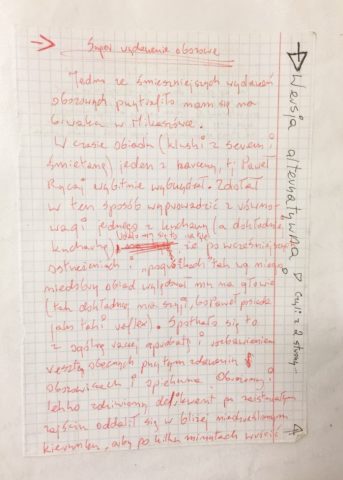 Super wydarzenie obozowe
Jedno ze śmieszniejszych wydarzeń
obozowych przytrafiło nam się na
biwaku w Mikaszówce.
W czasie obiadu (kluski z serem i
śmietaną) jeden z harcerzy, tj. Paweł
wybitnie wybrzydzał. Zdołał
w ten sposób wyprowadzić z równo-
wagi jednego z kucharzy (a dokładnie
kucharkę) że po wcześniejszych
ostrzeżeniach i pogróżkach tak
obiad wylądował mu na głowie
(tak dokładniej na szyi, bo Paweł posiada
jako taki reflex). Spotkało się to
z ogólną aprobatą i rozbawieniem
reszty obecnych przy tym zdarzeniu
obozowiczach i
lekko zdziwiony delikwent po zaistniałym
zajściu oddalił się w bliżej nieokreślonym
kierunku, aby po kilku minutach wrócić
Wersja alternatywna
czyli z 2 strony...